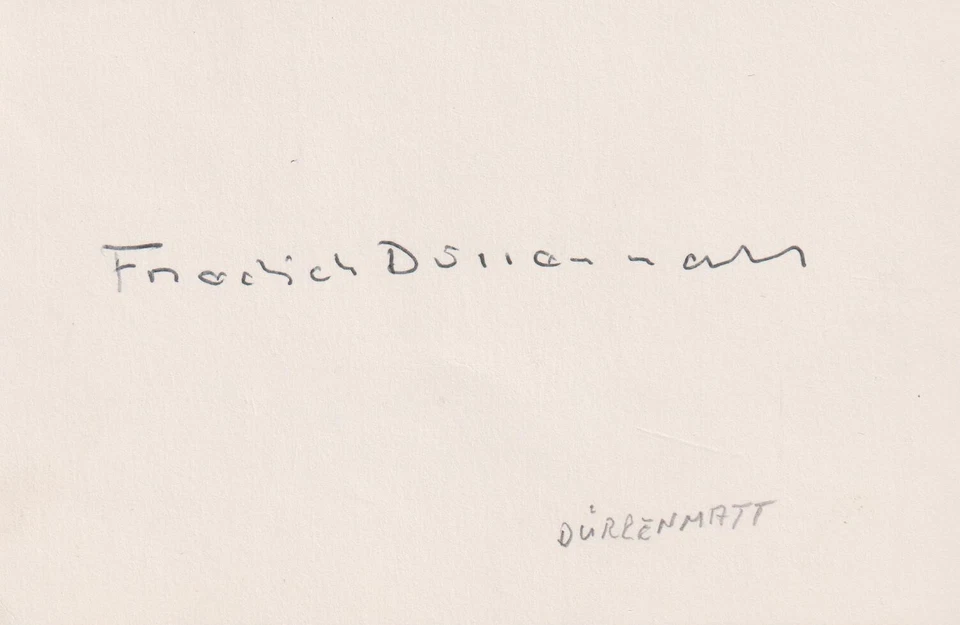 Friedrich Dürrenmatt
DÜRRENMATT